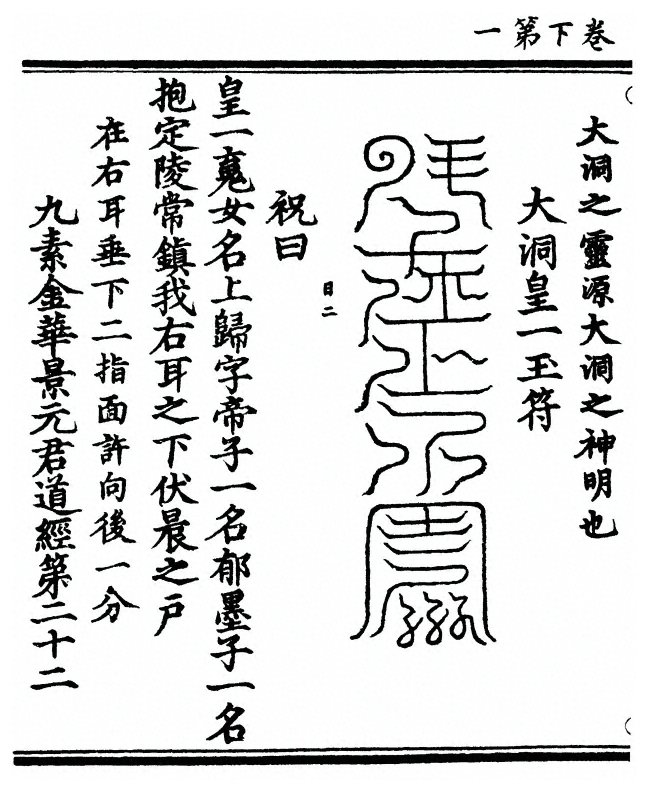 卷下第一
大洞之靈源大洞之神明也
大洞皇一玉符
日二
祝曰
皇一䰟女名上歸字帝子一名郁墨子一名
抱定陵常鎮我右耳之下伏晨之戶
在右耳垂下二指面許向後一分
九素金華景元君道經第二十二